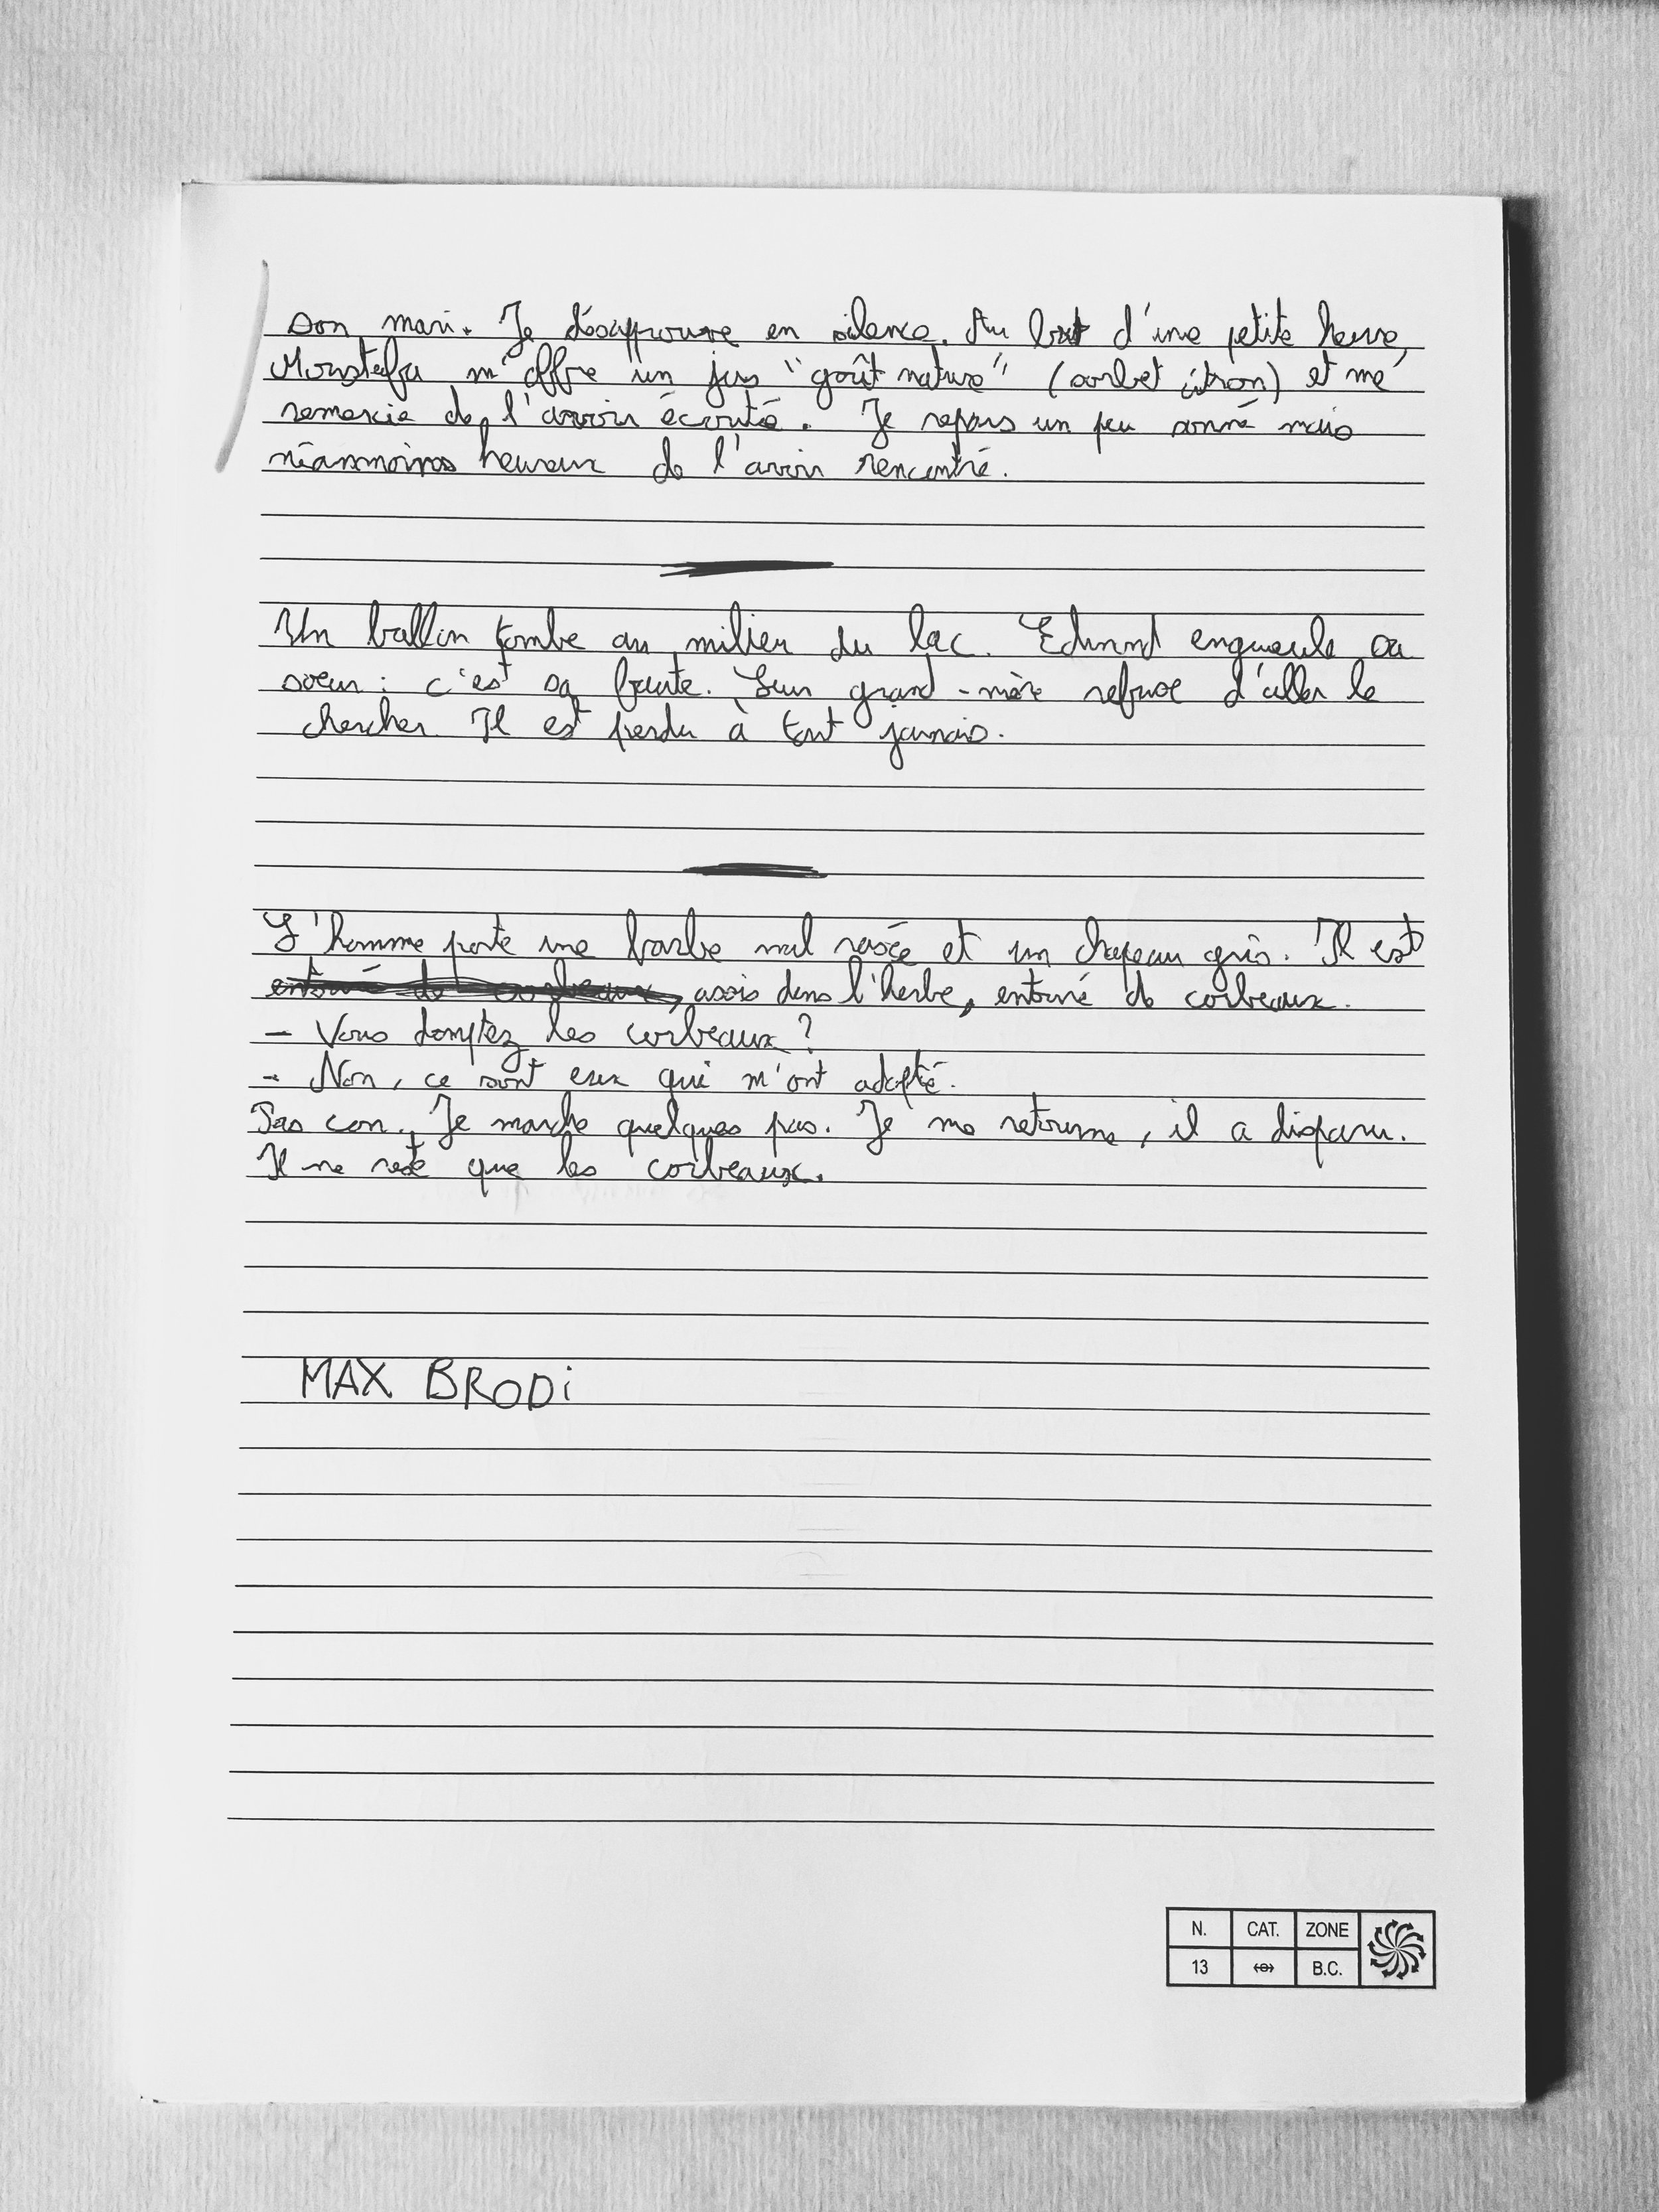 son mari. Je désapprouve en silence. Au bout d'une petite heure,
Moustafa m'offre un jus "goût nature" (sorbet citron) et me
remercie de l'avoir écouté. Je repars un peu sonné mais
néanmoins heureux de l'avoir rencontré.
Un ballon tombe au milieu du lac. Edmond engueule sa
soeur : c'est sa faute. Leur grand-mère refuse d'aller le
chercher. Il est perdu à tout jamais.
L'homme porte une barbe mal rasée et un chapeau gris. Il est
entouré de corbeaux, assis dans l'herbe, entouré de corbeaux.
- Vous domptez les corbeaux ?
- Non, ce sont eux qui m'ont adopté.
Pas con. Je marche quelques pas. Je me retourne, il a disparu.
Il ne reste que les corbeaux.
MAX BRODi
N. CAT. ZONE
13 B.C.